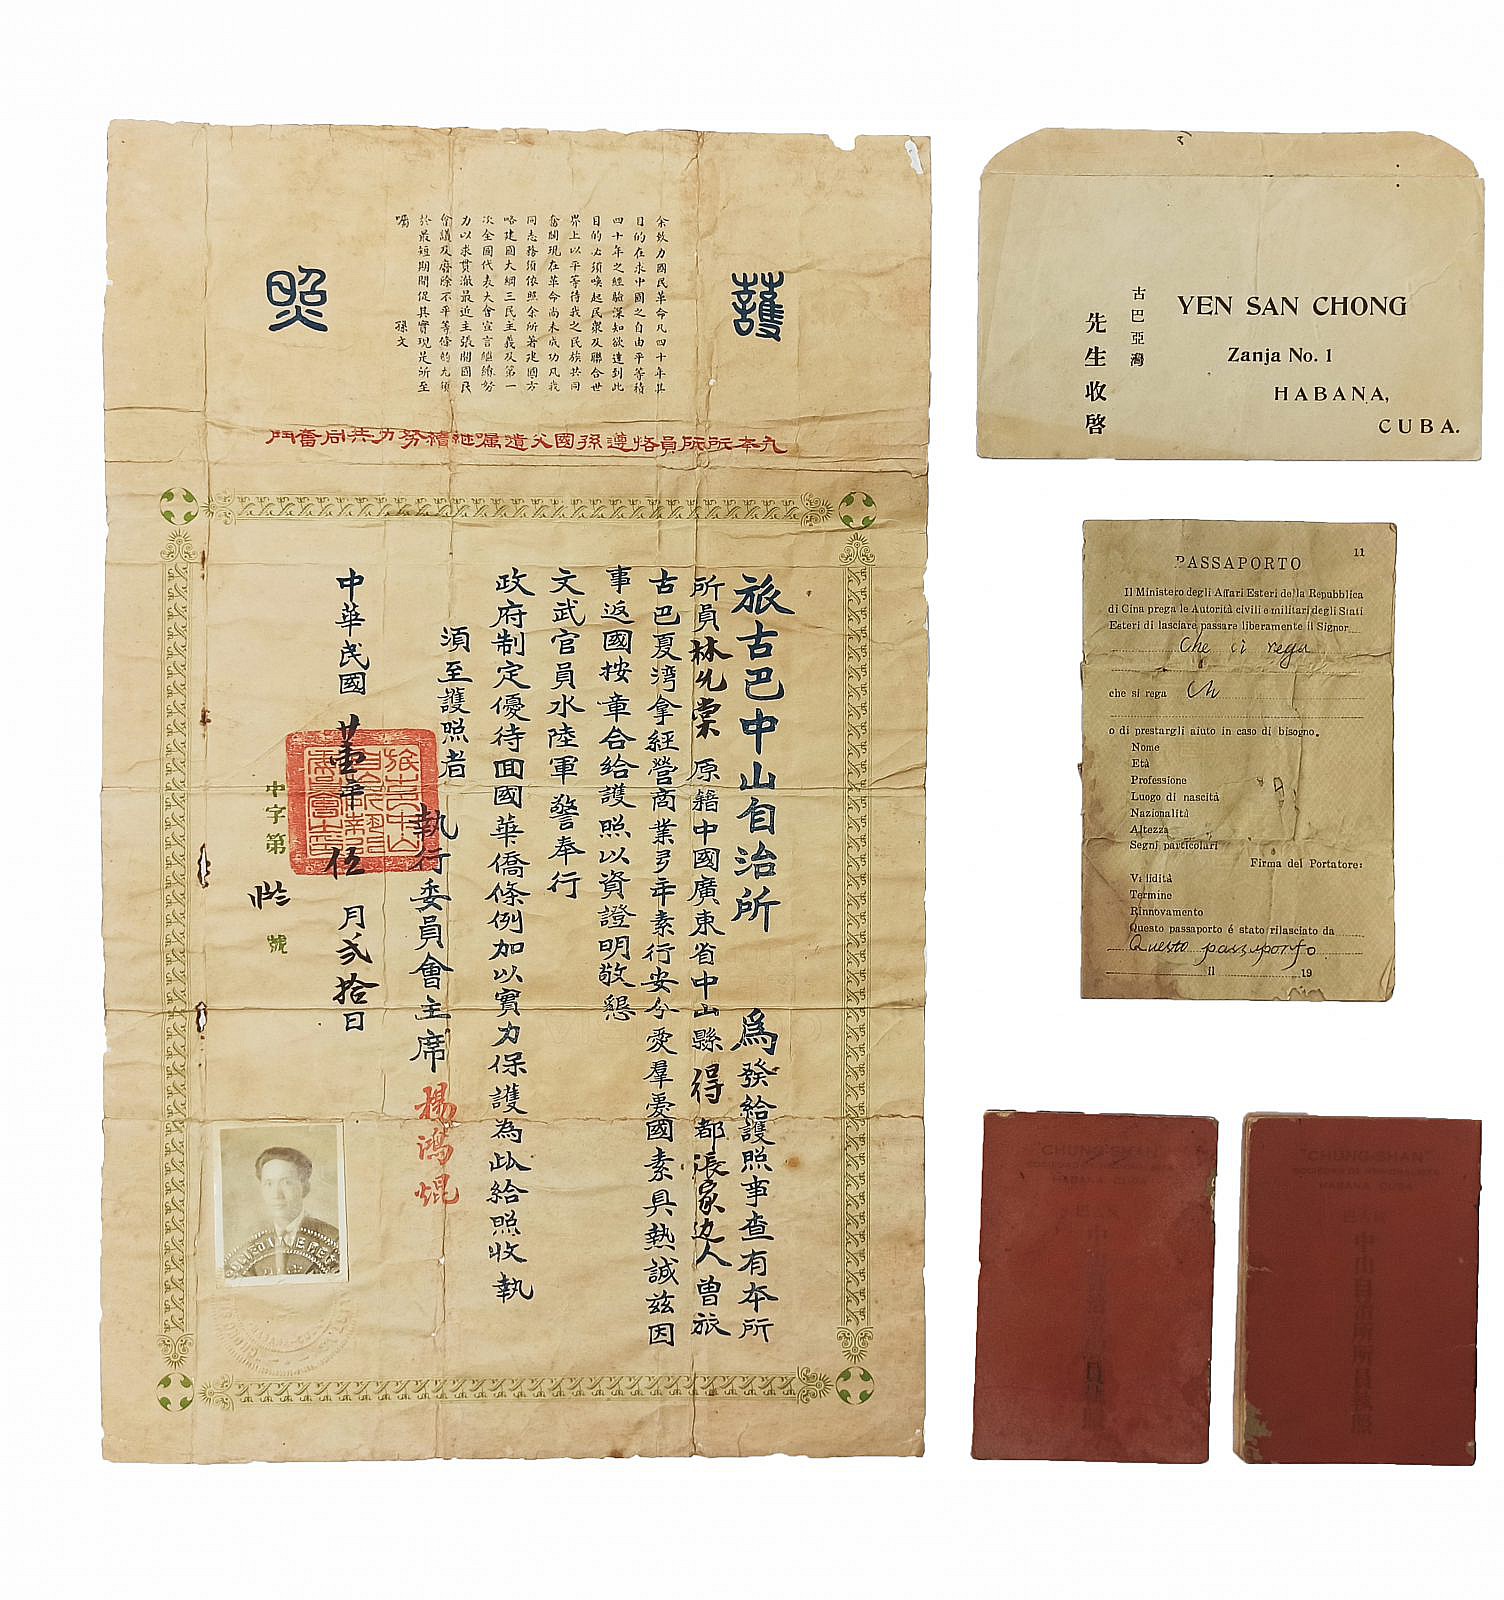 護照
余致力國民革命凡四十年其
目的在求中國之自由平等積
四十年之經驗深知欲達到此
目的必須喚起民衆及聯合世
界上以平等待我之民族共同
奮鬭現在革命尚未成功凡我
同志務須依照余所著建國方
略建國大綱三民主義及第一
次全國代表大會宣言繼續努
力以求貫澈最近主張開國民
會議及廢除不平等條約尤須
於最短期間促其實現是所至
囑 孫文
凡本所所員恪遵孫國父遺囑繼續努力共同奮鬥
旅古巴中山自治所 爲發給護照事查有本所
所員林 棠原籍中國廣東省中山縣得都張家边人曾旅
古巴夏湾拿經營商業多年素行安分愛羣憂國素具熱誠兹因
事返國按章合給護照以資證明敬懇
文武官員水陸軍警奉行
政府制定優待回國華僑條例加以實力保護為此給照收執
須至護照者
執行委員會主席 楊鴻焜
中華民國 年伍月弍拾日
中字第 號
古巴亞灣
先生收啓
YEN SAN CHONG
Zanja No. 1
HABANA,
CUBA.
11
PASSAPORTO
Il Ministero degli Affari Esteri della Repubblica
di Cina prega le Autorità civili e militari degli Stati
Esteri di lasciare passare liberamente il Signor
Che ci rega
che si rega Ch
o di prestargli aiuto in caso di bisogno.
Nome
Età
Professione
Luogo di nascità
Nazionalità
Altezza
Segni particolari
Firma del Portatore:
Validità
Termine
Rinnovamento
Questo passaporto é stato rilasciato da
Questo passaporto
il 19
CHUNG-SHAN
HABANA
"CHUNG-SHAN"
HABANA CUBA